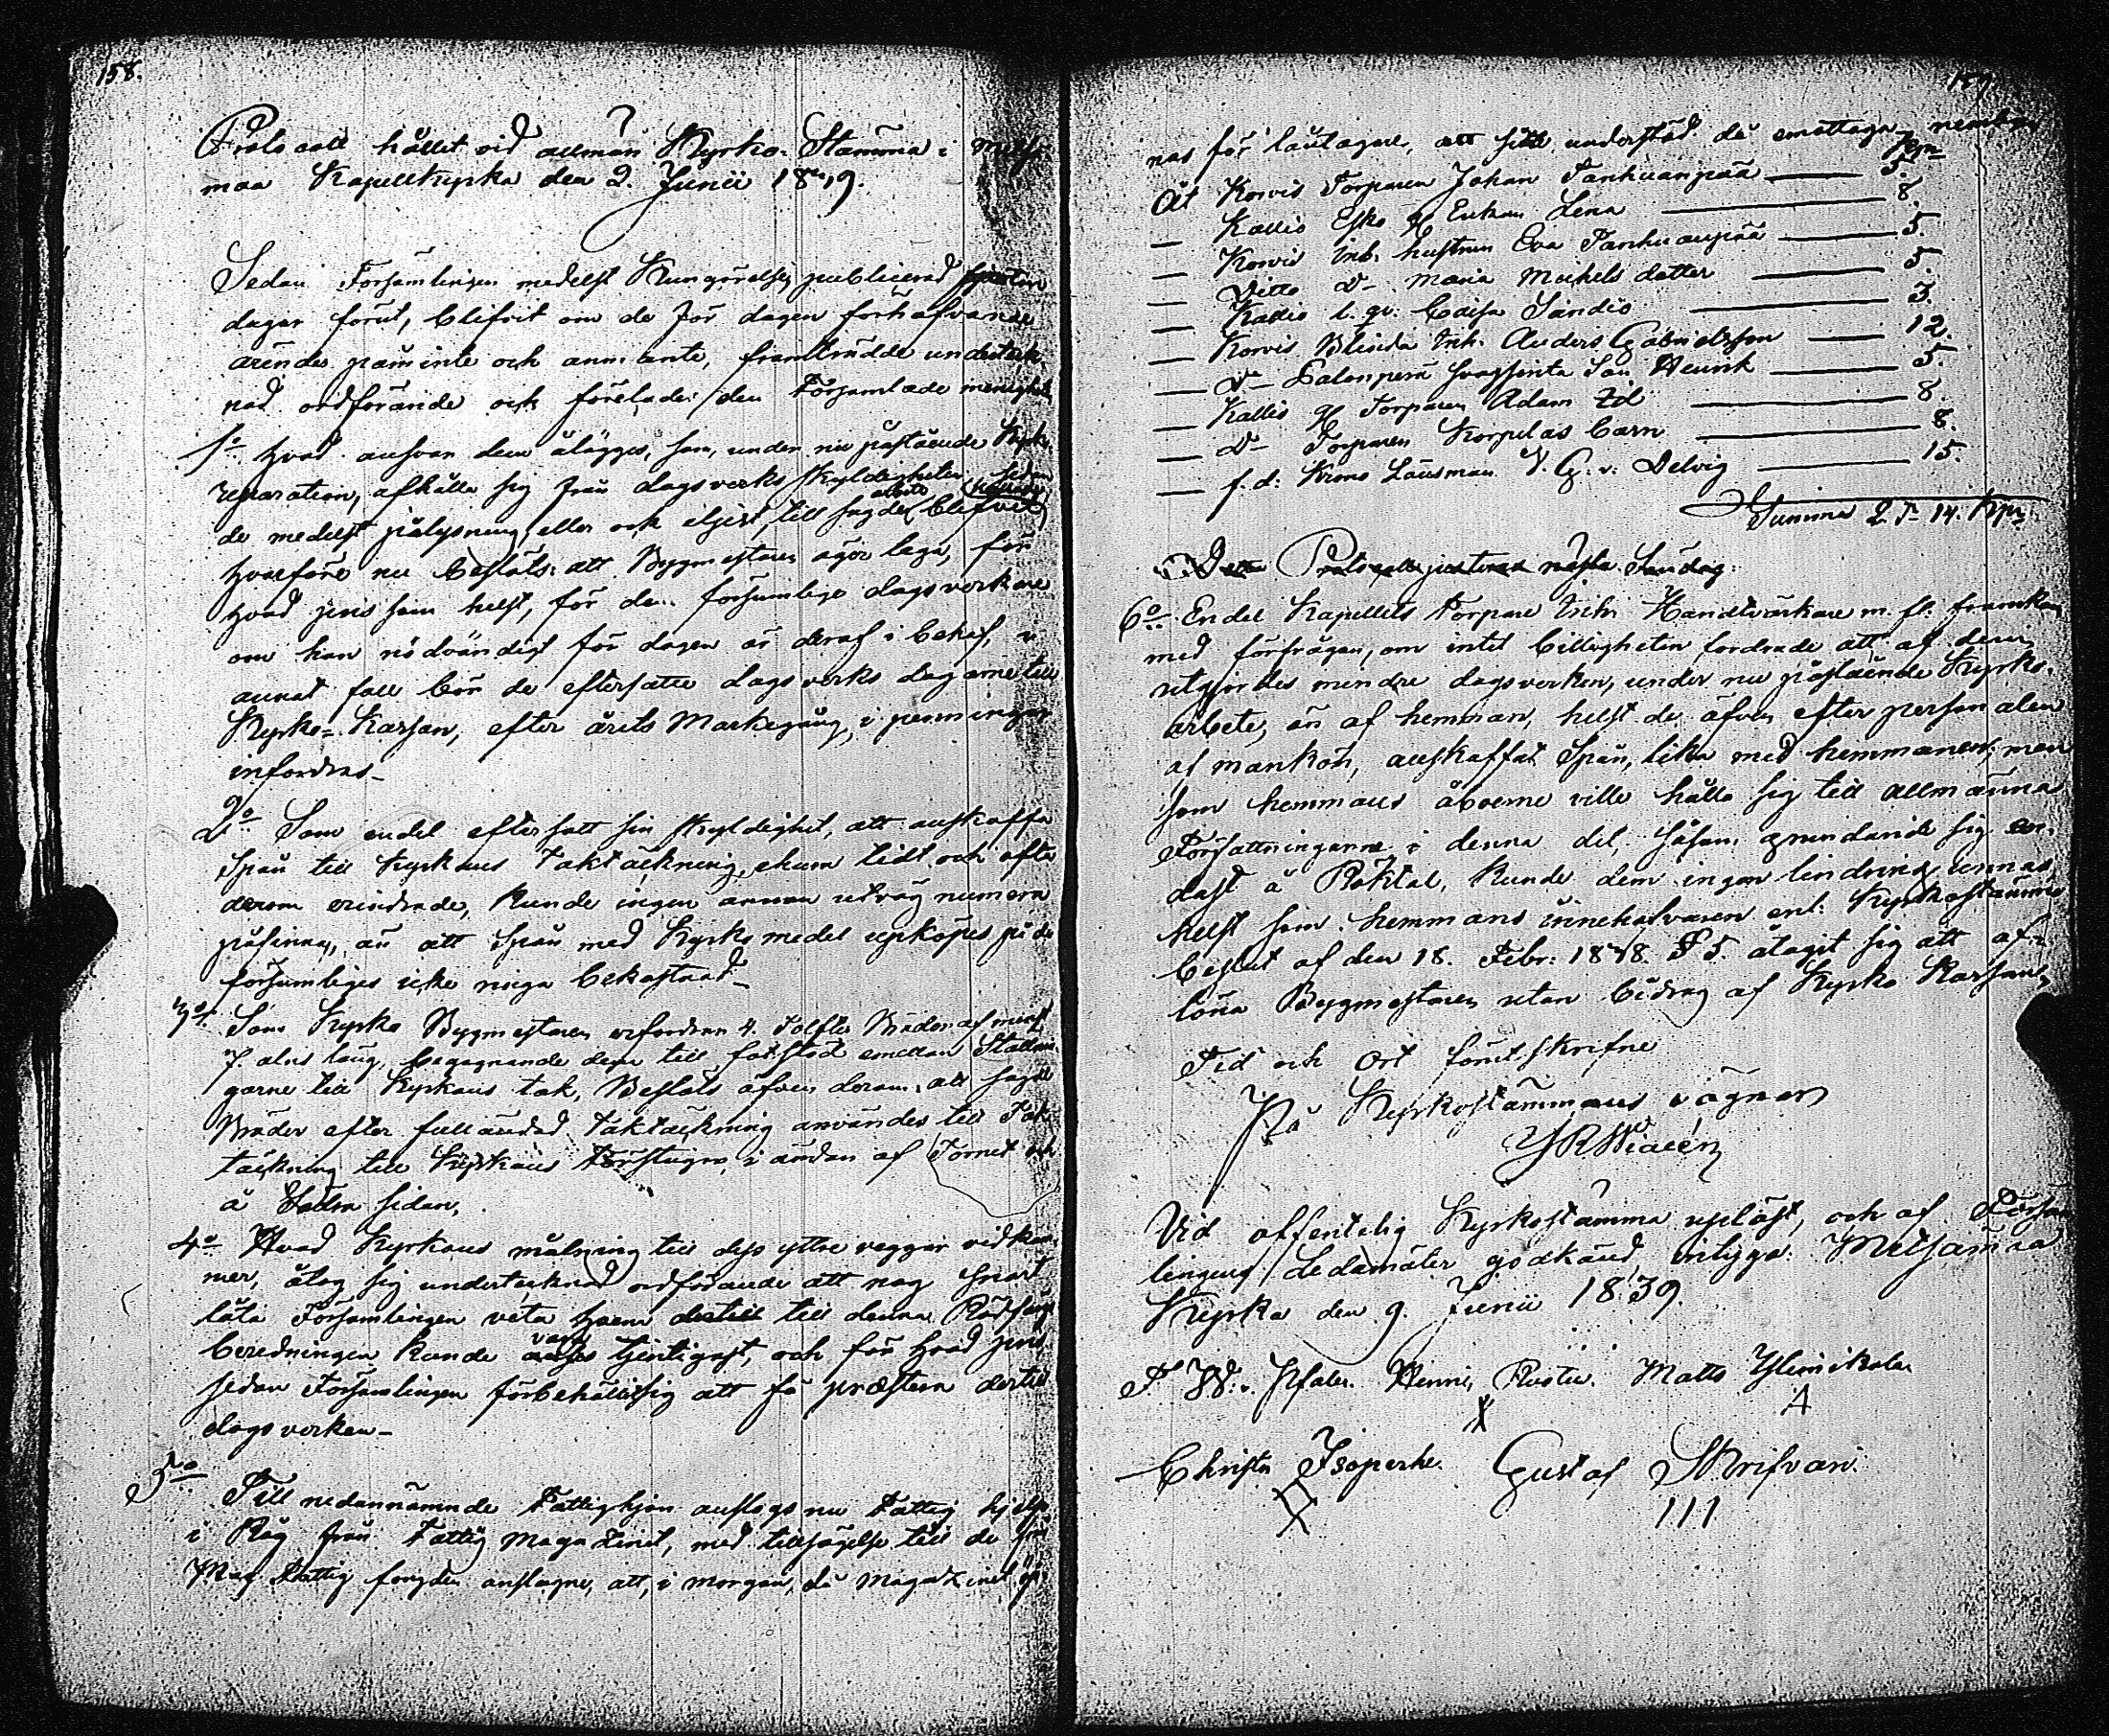 158.
Protocoll hållet vid allmän Kyrko-Stämma i Metsä-
maa Kapellkyrka den 2. Junii 1839.
Sedan Församlingen medelst Kungörelse, publicerad fjorton
dagar förut, blifvit om de för dagen förhafvande
ärender påminte och anmante, framträdde underteck-
nad ordförande och förelade den Församlade menighet
1o hvad ansvar dem ålägges, som, under nu påstående Kyrko
reparation, afhålla sig från dagsverks skyldigheten, sedan
de medelst pålysning, eller och eljest, till sagde arbete blifvit
hvarföre nu beslöts: att Byggmestaren ägor lega, för
hvad pris som helst, för den försumlige dagsverkare
om han nödvändigt för dagen är deraf i behof, i
annat fall bör de eftersatte dagsverks dagarne till
Kyrko-Kassan, efter årets Markegång, i penningar
infordras_
2o Som endel eftersatt sin skyldighet, att anskaffa
Spån till Kyrkans Taktäckning, ehuru tidt och ofta
derom erindrade, kunde ingen annan utväg numera
påfinnas, än att Spån med Kyrko medel upköpes på de
försumliges icke ringa bekostnad_
3o Som Kyrko Byggmestaren erfordran 4. Tolfter Bräder af minst
7. alns läng, begagnande dem till fotstöd emellan Ställnin
garne till Kyrkans tak, Beslöts äfven derom: att sagde
Bräder efter fulländad taktäckning användes till Tak
täckning till Kyrkans Förstugor, i ändan af Tornet och
å Södra sidan,
4o Hvad Kyrkans målning till dess yttre veggar vidkom-
mer, åtog sig undertecknad ordförande att nog snart
låta Församlingen veta hvem till denna Rödfärgs
beredningen kunde vara tjenligast, och för hvad pris
sedan Församlingen förbehållit sig att få præstera dertill
dagsverken_
5o Till nedannämnde Fattighjon anslogs nu Fattig hjelp
i Råg från Fattig Magazinet, med tillsägelse till de från
Mag. Fattig fonden anslagne, att, i morgon, då Magazinet öp-
159.
nas för låntagare, sitt understöd då emottaga, nemligen
Kpr
Åt Korvis Torparen Johan Tanhuanpää — 5.
— Kallis Esko Enkan Lena — 8.
— Korvis Inh. hustrun Eva Tanhuanpää — 5.
— Ditto D- Maria Michels dotter — 5.
— Kallis Caisa Sandis — 3.
— Korvis Blinda Inh. Anders Gabrielsson — 12.
— D- son Henrik — 5.
— Kallis Torparen Adam — 8.
— D- Torparen Korpelas barn — 8.
— f. d: Krono Länsman J. G. v: Delvig — 15.
Summa 2 T- 14. Kpr
Protocoll justeras nästa Söndag.
6o Endel Kapellets Torpare Inh. Handtvärkare m. fl. framkom
med förfrågan, om intet billigheten fordrade att af dem
utgjordes mindre dagsverken, under nu påstående Kyrko-
arbete, än af hemman, helst de äfven efter personalen
af mankön, anskaffat Spån, lika med hemmanen; men
som hemmans åboerne ville hålla sig till allmänna
Författningarne i denna del, såsom grundande sig en-
dast å Röktal, kunde dem ingen lindring unnas,
helst som hemmans innehafvaren enl: Kyrkostämmo
beslut af den 18. Febr: 1838. § 5. åtagit sig att af-
löna Byggmestaren utan bidrag af Kyrko Kassan,
Tid och Ort förut skrifne
På Kyrkostämmans vägnar
Vid offentelig Kyrkostämma upläst, och af Försam
lingens Ledamöter godkänd, intyga. Metsämaa
Kyrka den 9. Junii 1839.
F. W: v. Pfaler. Henric Matts
A
Christer Isoperhe. Gustaf Skrifvari.
111